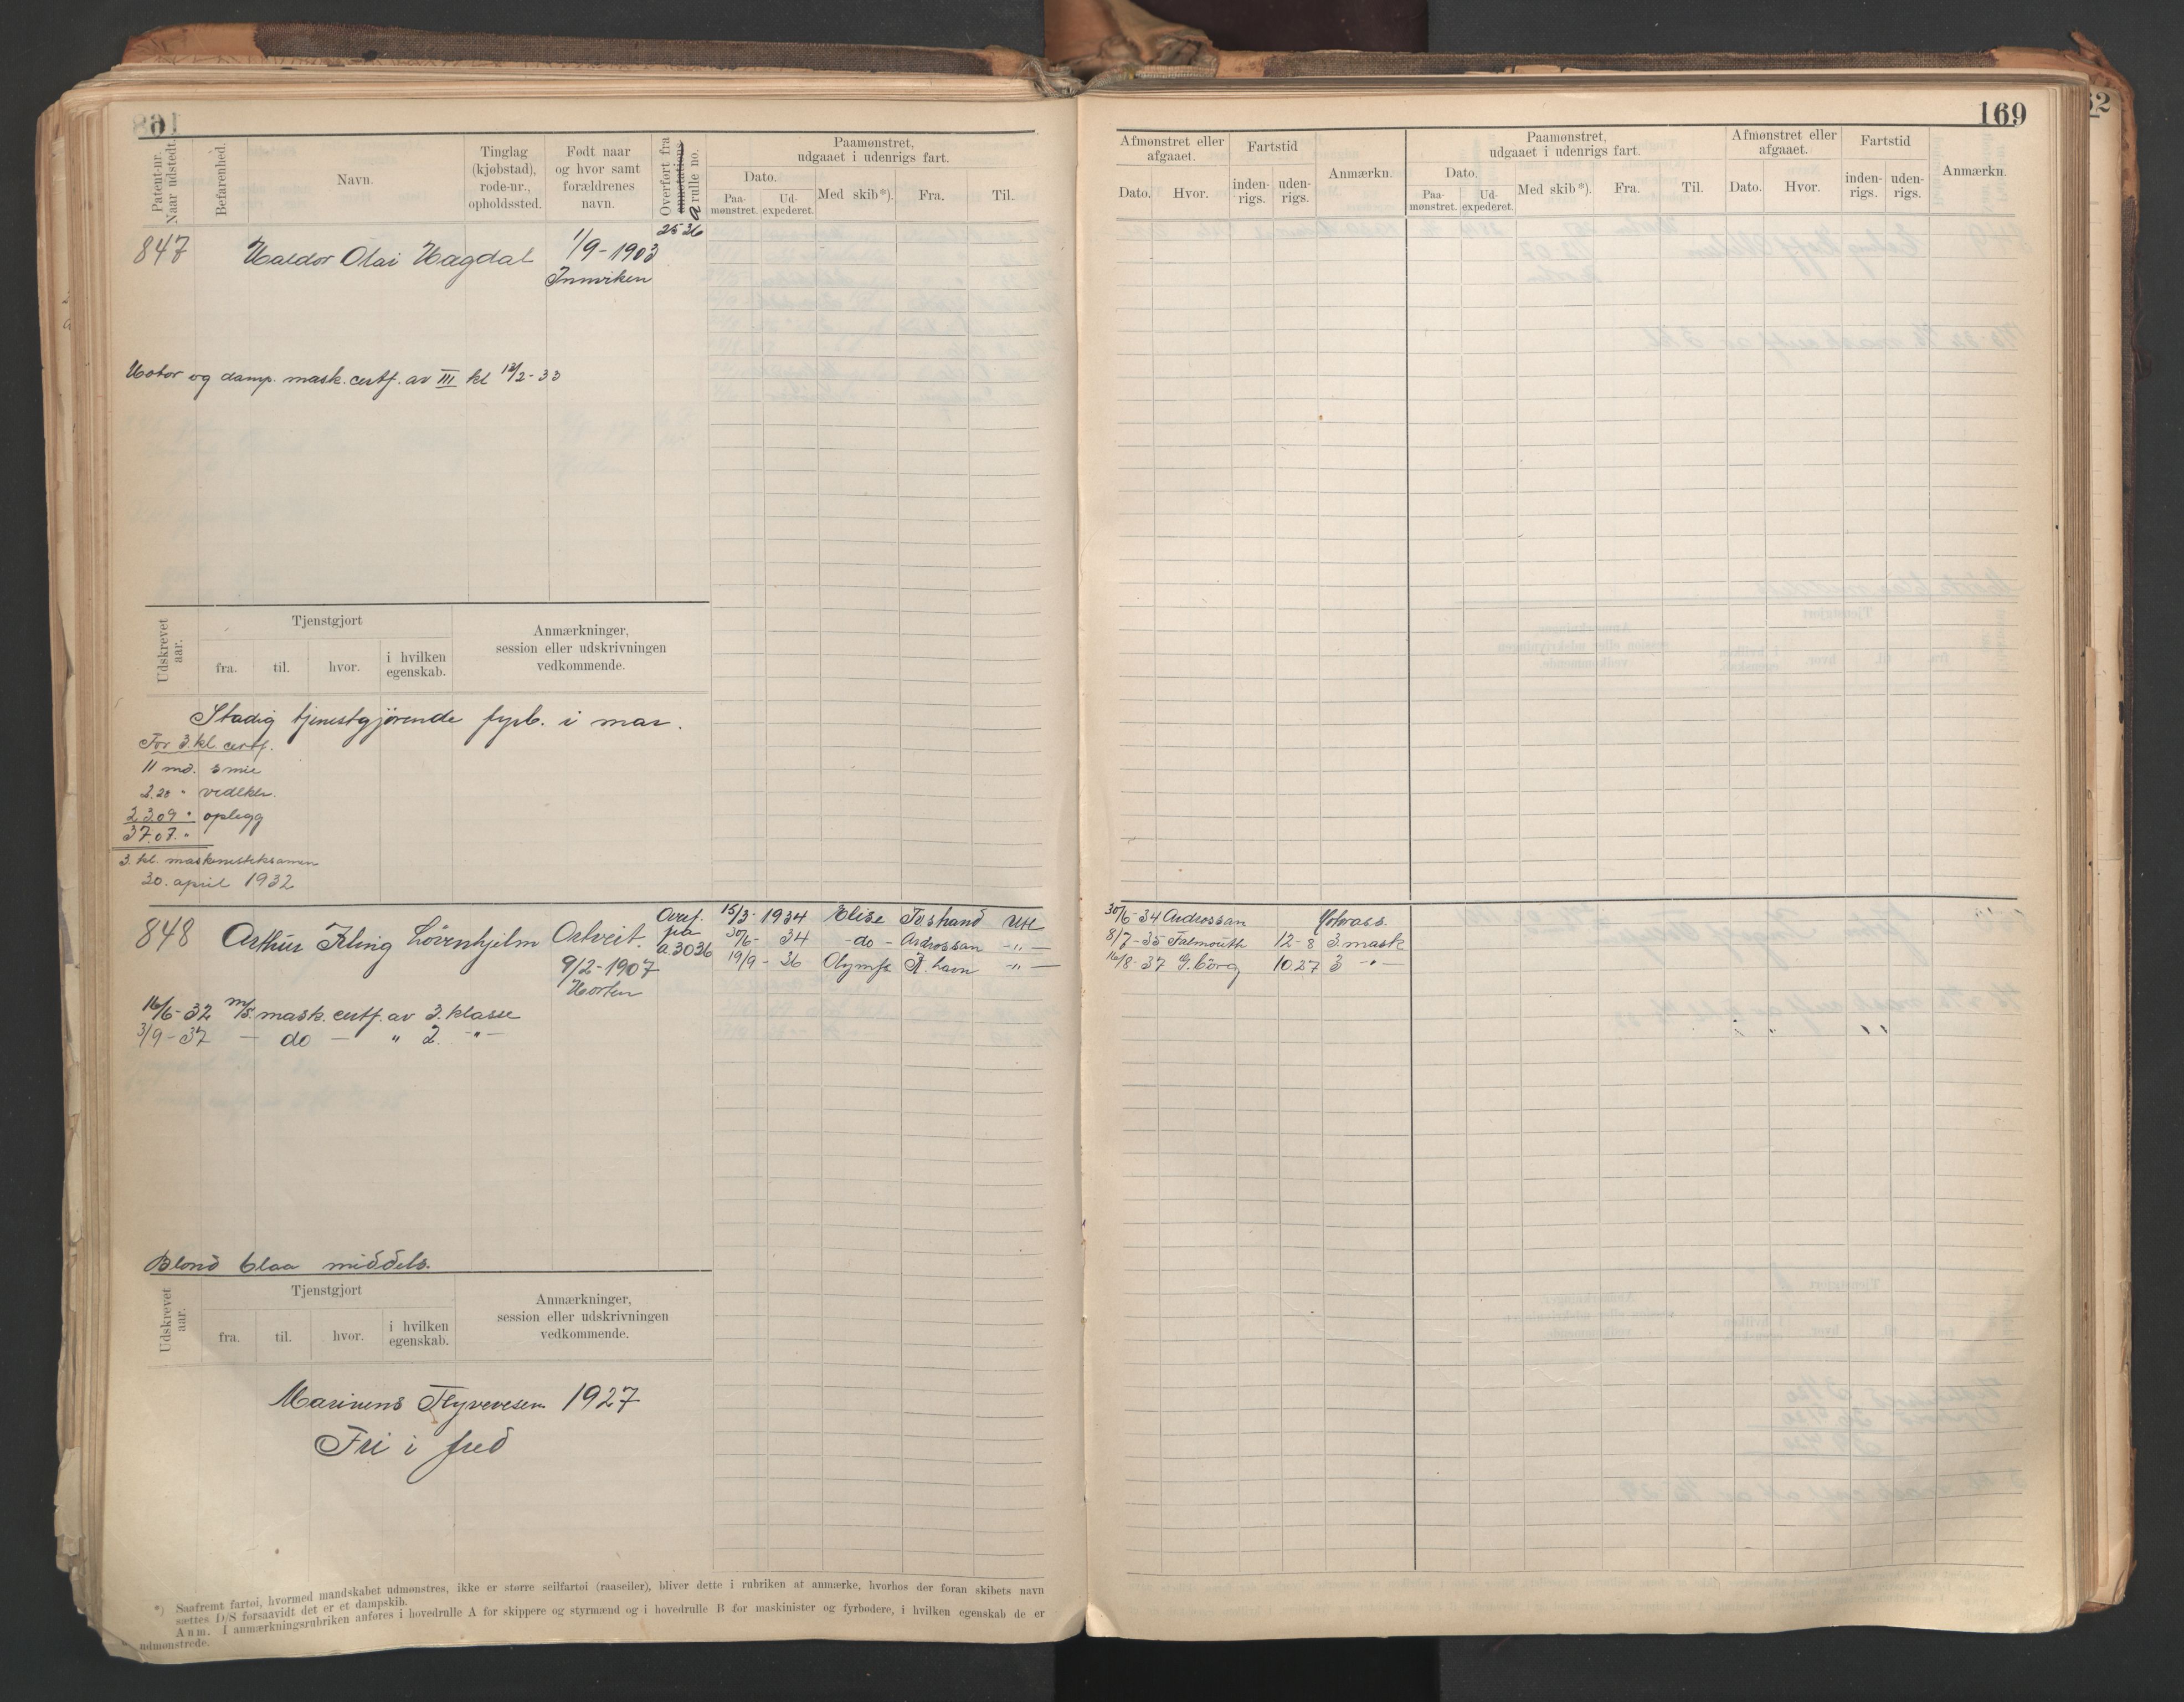 168
169
Patent-nr. Naar udstedt.
Befarenhed.
Navn.
Tinglag (kjøbstad), rode-nr., opholdssted.
Født naar og hvor samt forældrenes navn.
Overført fra annotations a rulle no.
Paamønstret, udgaaet i udenrigs fart.
Dato.
Paa-mønstret.
Ud-expederet.
Med skib*).
Fra.
Til.
Afmønstret eller afgaaet.
Dato.
Hvor.
Fartstid
inden-rigs.
uden-rigs.
Anmærkn.
Paamønstret, udgaaet i udenrigs fart.
Dato.
Paa-mønstret.
Ud-expederet.
Med skib*).
Fra.
Til.
Afmønstret eller afgaaet.
Dato.
Hvor.
Fartstid
inden-rigs.
uden-rigs.
Anmærkn.
847 Haldor Olai Hagdal 1/9-1903 2536
Innviken
Motor og damp. mask. certf. av III kl 18/2-33
Udskrevet aar.
Tjenstgjort
fra.
til.
hvor.
i hvilken egenskab.
Anmærkninger, session eller udskrivningen vedkommende.
Stadig tjenestgjørende fyrb. i mar.
For 3. kl certf.
11 md. smie
2.28 " vedlkh.
23.09 " oplegg
37.07. "
3. kl. maskinisteksamen
30. april 1932
848 Arthur Kling Lövenhjelm Ostveit. Overf. fra a 3036
9/2-1907
Horten
15/3- 1934 Elise Tvstrand Utl
30/6- 34 -do- Ardrossan -"-
19/9- 36 Olymp K.havn -"-
30/6-34 Ardrossan Motorass.
8/7-35 Falmouth 12-8 3 mask
16/8-37 G.borg 10.27 3 -"-
16/6-32 m/s. mask. certf. av 3. klasse
3/9-37 - do - " 2. -"-
Blond blaa middels.
Udskrevet aar.
Tjenstgjort
fra.
til.
hvor.
i hvilken egenskab.
Anmærkninger, session eller udskrivningen vedkommende.
Marinens Flyvevesen 1927
Fri i fred
*) Saafremt fartøi, hvormed mandskabet udmønstres, ikke er større seilfartøi (raaseiler), bliver dette i rubriken at anmærke, hvorhos der foran skibets navn
sættes D/S forsaavidt det er et dampskib.
Anm. I anmærkningsrubriken anføres i hovedrulle A for skippere og styrmænd og i hovedrulle B for maskinister og fyrbødere, i hvilken egenskab de er
udmønstrede.